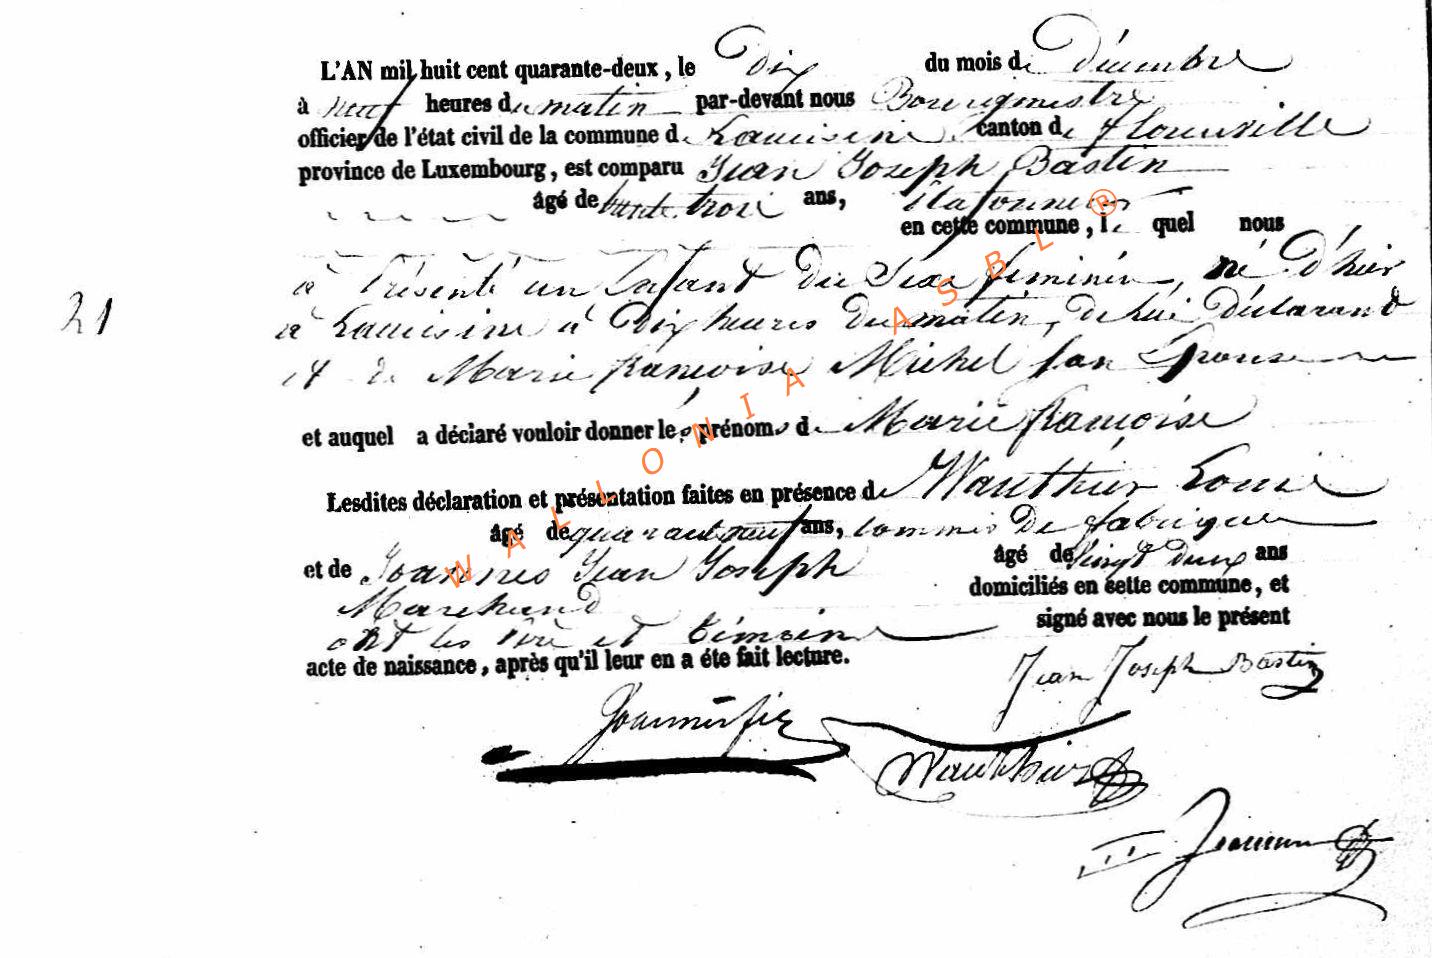 L'AN mil huit cent quarante-deux, le Dix du mois de Décembre
à neuf heures du matin par-devant nous Bourgmestre
officier de l'état civil de la commune de Lacuisine canton de florenville
province de Luxembourg, est comparu Jean Joseph Bastin
âgé de trente trois ans,
en cette commune, le quel nous
à Présenté un Enfant du Sexe féminin, né d'hier
21
à Lacuisine à Dix heures du matin, de lui Déclarant
et de Marie françoise Michel son Epouse
et auquel a déclaré vouloir donner les prénoms de Marie françoise
Lesdites déclaration et présentation faites en présence de Wauthier Louis
âgé de quarante neuf ans, commis de fabrique
et de Joannes Jean Joseph âgé de vingt deux ans
Marchand domiciliés en cette commune, et
ont les Père et témoins signé avec nous le présent
acte de naissance, après qu'il leur en a éte fait lecture.
Jean Joseph Bastin
Wauthier
WALLONIA ASBL ®